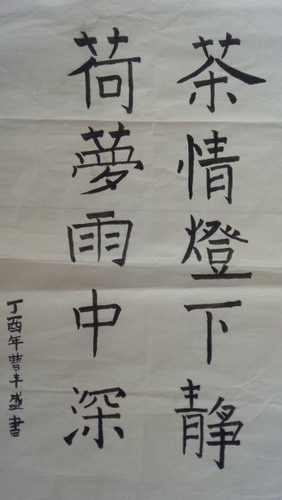 茶情燈下靜
荷夢雨中深
丁酉年曹丰盛書